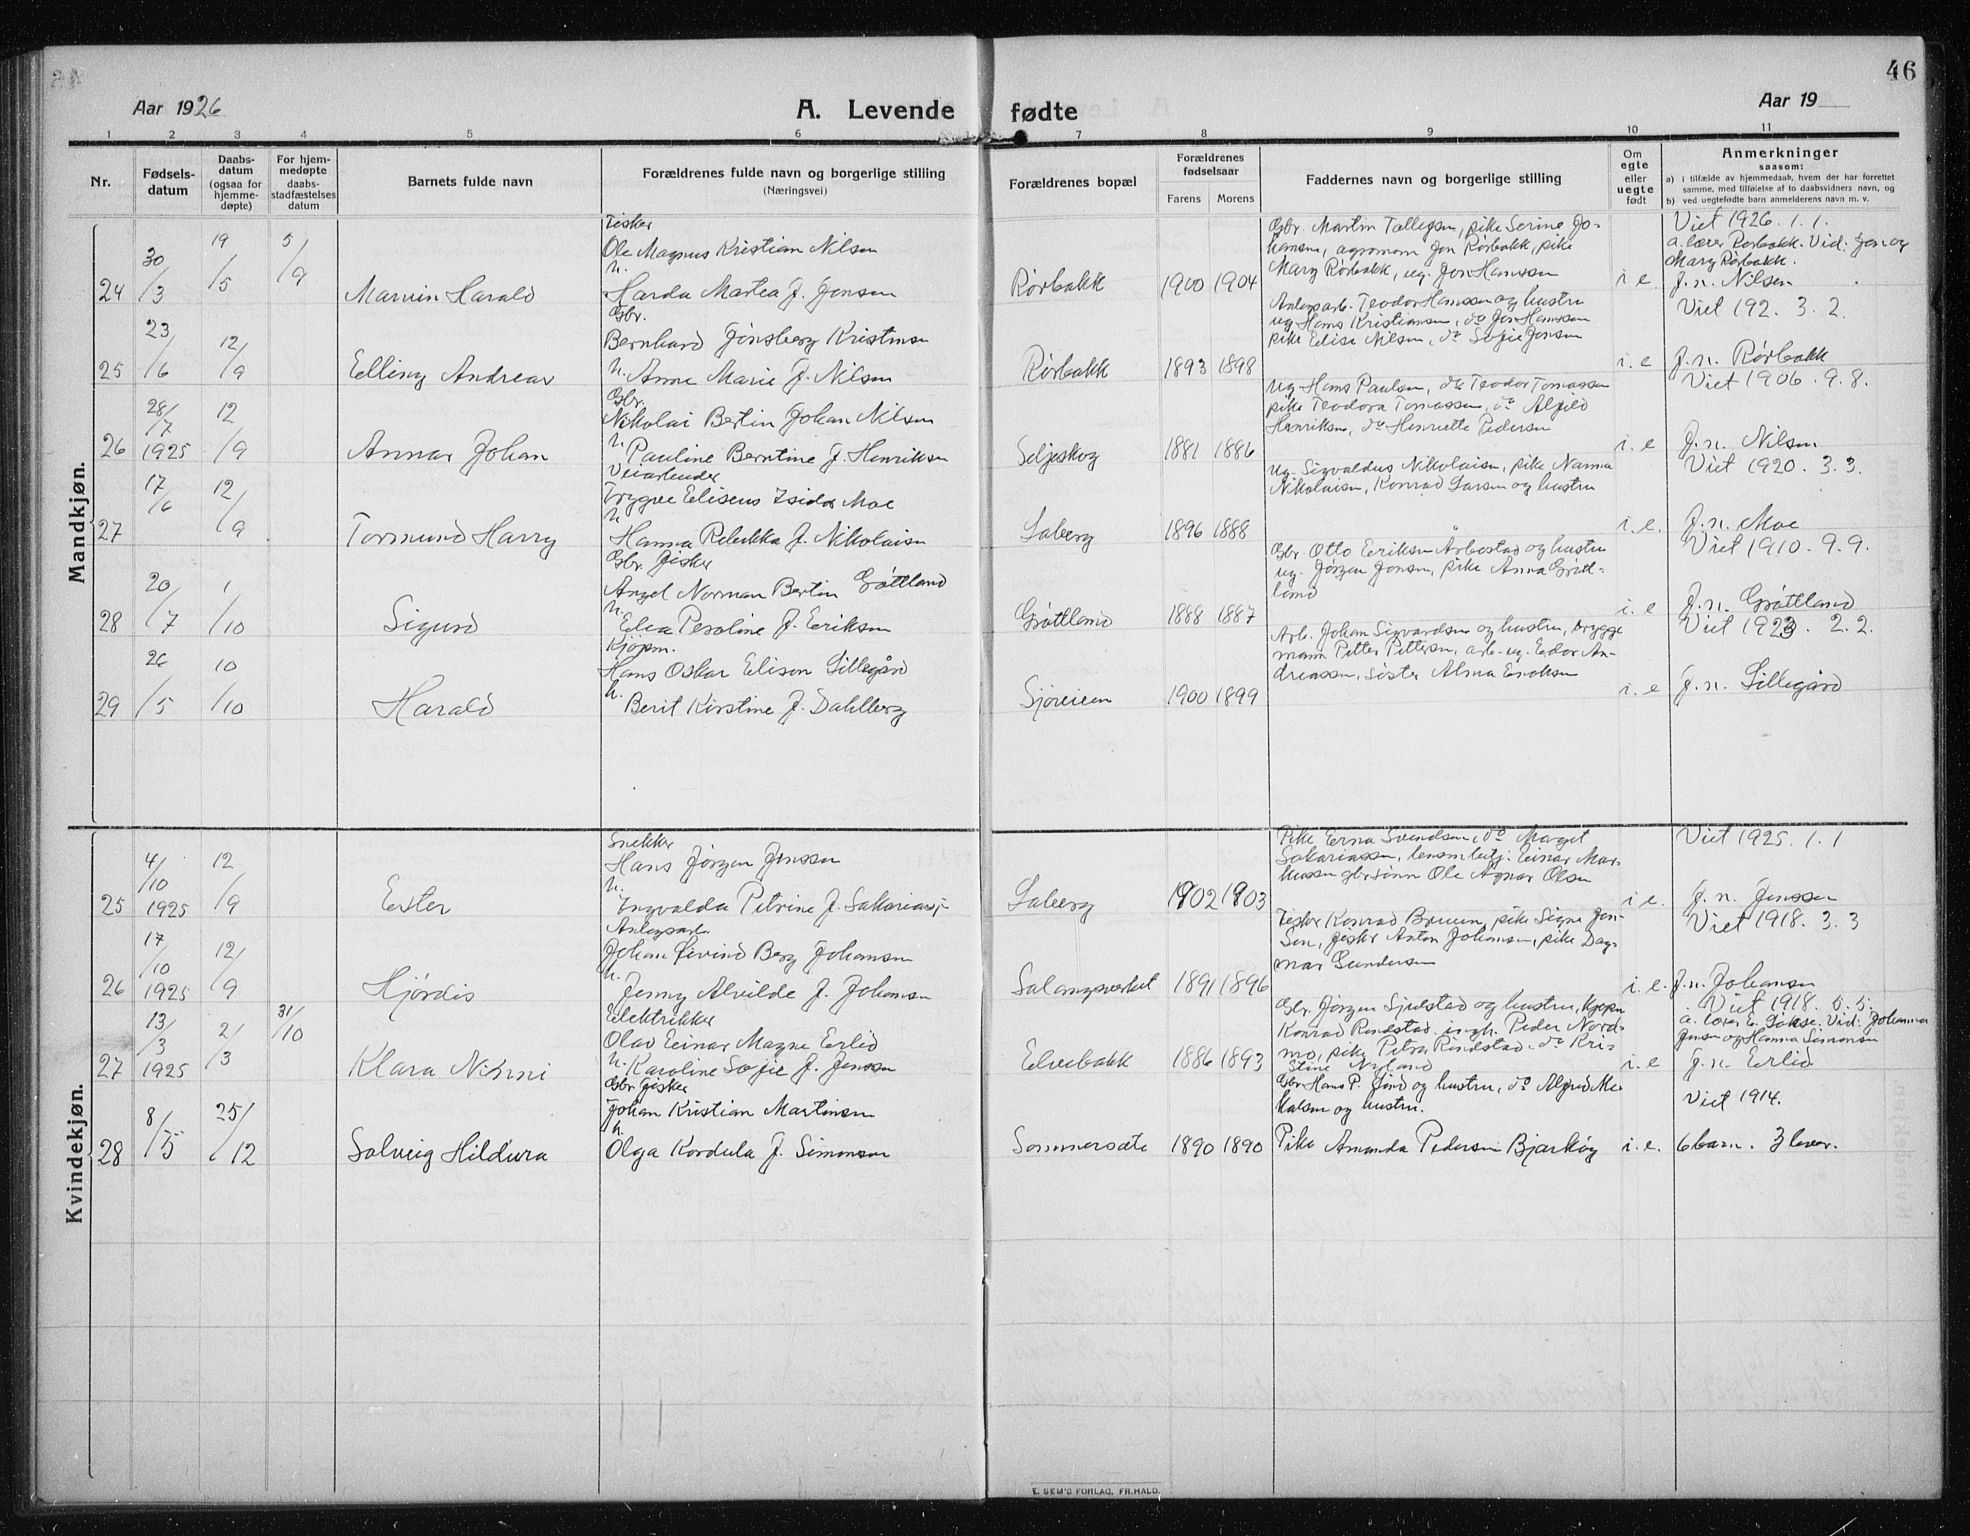 46
Aar 1926
A. Levende fødte
Aar 19
1 2 3 4 5 6 7 8 9 10 11
Nr.
Fødsels-
datum
Daabs-
datum
(ogsaa for
hjemme-
døpte)
For hjem-
medøpte
daabs-
stadfæstelses
datum
Barnets fulde navn
Forældrenes fulde navn og borgerlige stilling
(Næringsvei)
Forældrenes bopæl
Forældrenes
fødselsaar
Farens Morens
Faddernes navn og borgerlige stilling
Om
egte
eller
uegte
født
Anmerkninger
saasom:
a) i tilfælde av hjemmedaab, hvem der har forrettet
samme, med tilføielse af to daabsvidners navn, og
b) ved uegtefødte barn anmelderens navn m. v.
Mandkjøn.
24
30/3
19/5
5/9
Marvin Harald
Fisker
Ole Magnus Kristian Nilsen
h.
Harda Martea f. Jensen
Rørbakk
1900 1904
Gbr. Martin Tollefsen, pike Serine Jo-
hansen, agronom Jon Rørbakk, pike
Mary Rørbakk, ug. Jon Hanssen
i e.
Viet 1926. 1. 1.
a. lærer Rørbakk. Vid: Jon og
Mary Rørbakk.
f. n. Nilsen
25
23/6
12/9
Elling Andreas
Gbr.
Bernhard Jønsberg Kristensen
h. Anne Marie f. Nilsen
Rørbakk
1893 1898
Anlegsarb. Teodor Hanssen og hustru
ug. Hans Kristiansen, do Jon Hanssen
pike Elise Nilsen, do Sofie Jensen
i. e
Viet 192. 3. 2.
f. n. Rørbakk
26
28/7
1925
12/9
Annar Johan
Gbr.
Nikolai Bertin Johan Nilsen
h.
Pauline Berntine f. Henriksen
Seljeskog
1881 1886
Ug. Hans Paulsen, do Teodor Tomassen
pike Teodora Tomassen, do Alfild
Henriksen, do Henriette Pedersen
i. e
Viet 1906. 9. 8.
f. n. Nilsen
27
17/6
12/9
Tormund Harry
Veiarbeider
Trygve Elisens Isidor Moe
h.
Hanna Rebekka f. Nikolaisen
Laberg
1896 1888
Ug. Sigvaldus Nikolaisen, pike Nanna
Nikolaisen, Konrad Larsen og hustru
i. e.
Viet 1920. 3. 3.
f. n. Moe
28
20/7
1/10
Sigurd
Gbr. fisker
Angel Norman Bertin Grøttland
h.
Elea Peroline f. Eriksen
Grøttland
1888 1887
Gbr. Otto Eriksen Årbostad og hustru
ug. Jørgen Jensen, pike Anna Grøtt-
land
i. e
Viet 1910. 9. 9.
f. n. Grøttland
29
26/5
10/10
Harald
Kjøpm.
Hans Oskar Elison Lillegård
h.
Berit Kirstine f. Dahlberg
Sjøveien
1900 1899
Arb. Johan Sigvardsen og hustru, brygge
mann Petter Pettersen, arb. ug. Edor An-
dreassen, Søster Alma Enoksen
i. e
Viet 1923. 2. 2.
f. n. Lillegård
Kvindekjøn.
25
4/10
1925
12/9
Ester
Snekker
Hans Jørgen Jenssen
h.
Ingvalda Petrine f. Sakariass
Laberg
1902 1903
Pike Erna Svendsen, do Marget
Sakariassen, lensm.betj. Einar Mar-
kussen gbr.sønn Ole Agnar Olsen
i e.
Viet 1925. 1. 1
f. n. Jenssen
26
17/10
1925
12/9
Hjørdis
Anlegsarb.
Johan Eivind Berg Johansen
h.
Jenny Alvilde f. Johansen
Salangsverket
1891 1896
Fisker Konrad Bruun, pike Signe Jen-
sen, fisker Anton Johansen, pike Dag-
mar Gundersen
i. e.
Viet 1918. 3. 3
f. n. Johansen
27
13/3
1925
2/3
31/10
Klara Nenni
Elektrikker
Olav Einar Magne Erlid
h. Karoline Sofie f. Jenssen
Elvebakk
1886 1893
Gbr. Jørgen Sjulstad og hustru, Kjøpm
Konrad Rindstad. ingh. Peder Nord-
mo, pike Petra Rindstad, do Kris-
tine Nyland
i. e
Viet 1918. 5. 5.
a. lærer E. Lakse. Vid: Johanna
Jensen og Hanna Simonsen
f. n. Erlid
28
8/5
25/12
Solveig Hildura
Gbr. fisker
Johan Kristian Martinsen
h.
Olga Kordula f. Simonsen
Sommersæte
1890 1890
Gbr. Hans P. Lind og hustru, do Alfred Mi-
kalsen og hustru.
Pike Amanda Pedersen Bjarkøy
i. e.
Viet 1914.
6 barn. 3 lever.
E. SEM'S FORLAG, FR.HALD.